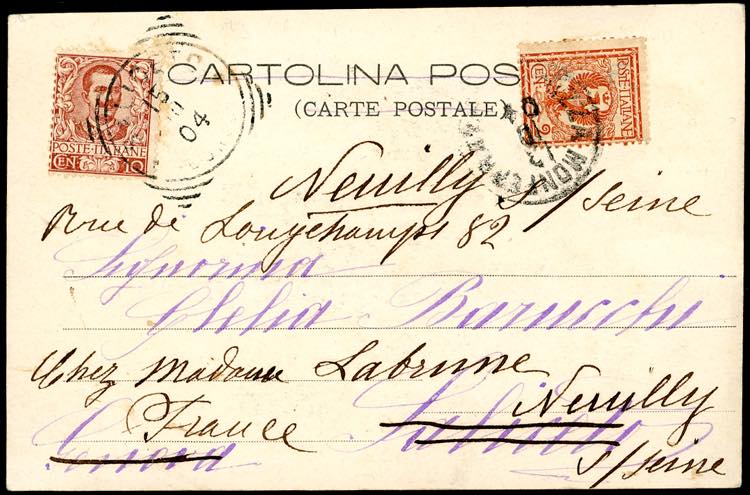 CARTOLINA POS
(CARTE POSTALE)
POSTE·ITALIANE
CEN· 10
15
04
POSTE·ITALIANE
CEN 2
Neuilly s/Seine
Rue de Longchamps 82
Signorina
Clelia Barucchi
Chez Madame Labrune
Neuilly
France
s/Seine